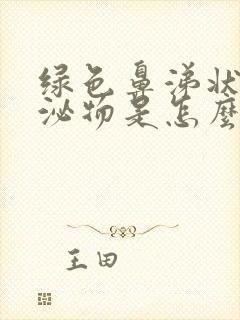 绿色鼻涕状
泌物是怎麽
王田